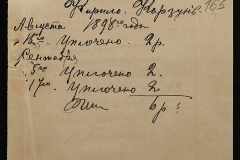 Кирило Карзунів 165
Августа 1898 года
15го Уплочено 2 р.
Сентября
5го Уплочено 2.
17го Уплочено 2
6 р.